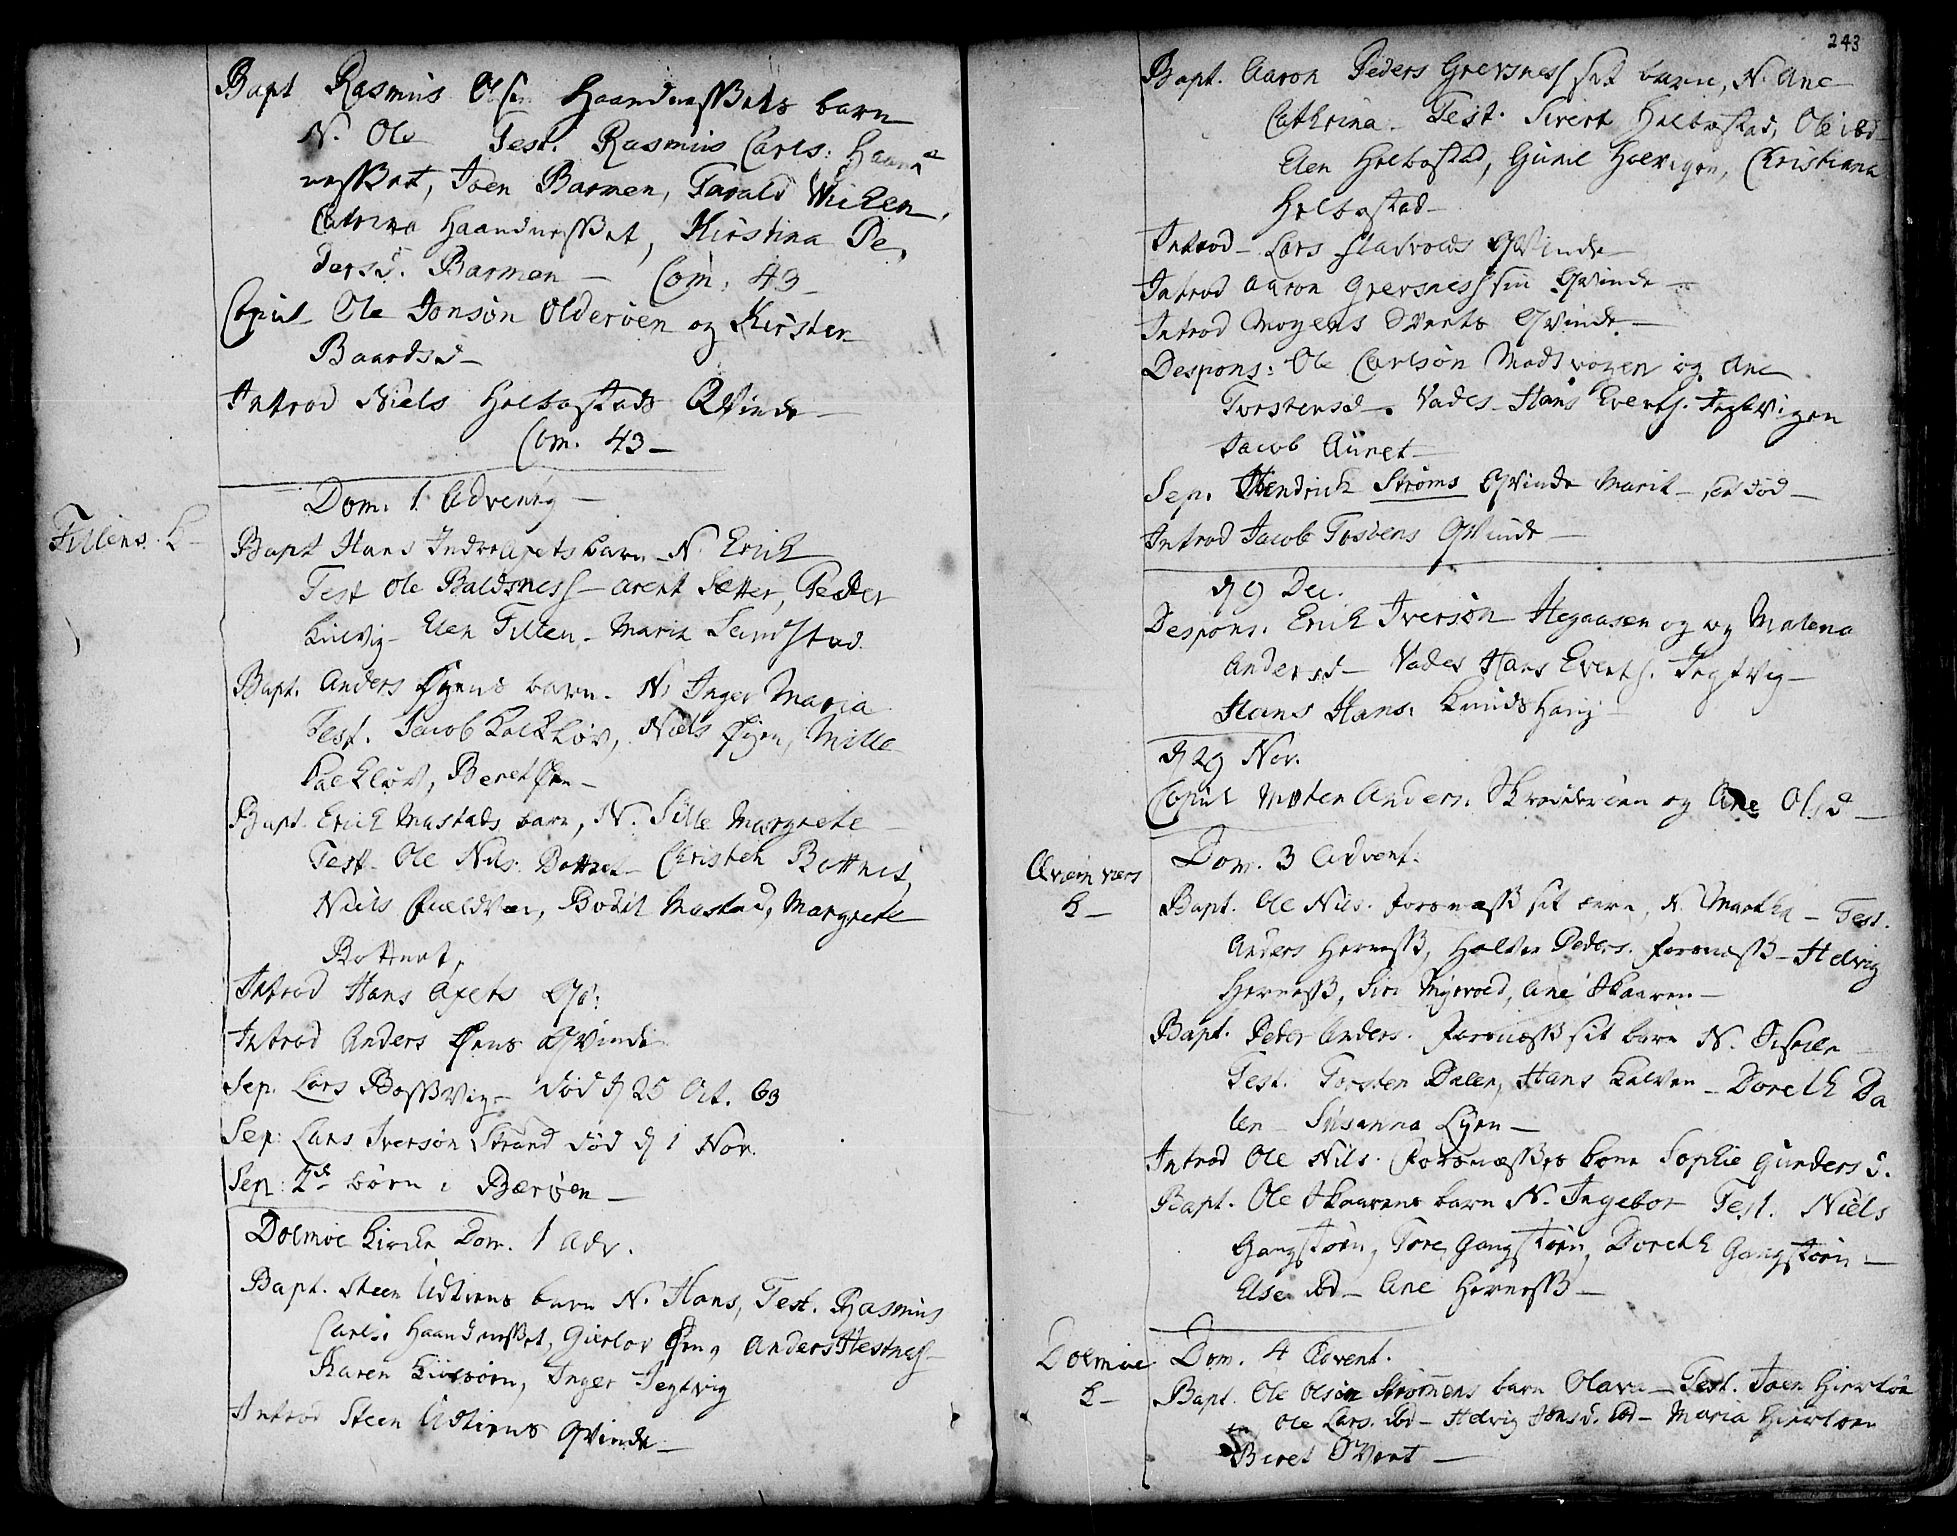 Bapt Rasmus Olsen Haandnessets barn
N. Ole Test. Rasmus Carls: Haand
nesset, Joen Barmen, Tarald Wicken,
Catrina Haandnesset, Kirstina Pe,
dersd. Barmen — Com: 43 —
Copul Ole Jonsøn Olderøen og Kirsten
Baardsd —
Introd Niels Holbostads Qvinde —
Com. 43 —
Dom. 1. Adventq —
Fillens K —
Bapt Hans Indre Axets barn N. Erich
Test Ole Baldsness — Arent Sætter, Peder
Kulvig — Elen Fillen — Marit Sundstad
Bapt. Anders Øyens barn. N. Inger Maria
Test. Jacob Kalkløv, Niels Øyen, Mille
Kalkløv, Beret Øen —
Bapt. Erich Mastads barn, N. Sille Margrete —
Test. Ole Nils. Bottnet — Christen Bottnet,
Niels, Bodil Mastad, Margrete
Bottnet,
Introd Hans Axets Qv:
Introd Anders Øens Qvinde
Sep. Lars Bossvig — død d 25 Oct. 63
Sep: Lars Iversøn Strand død d 1 Nov.
Sep: 2de børn i Bærøen —
Dolmøe Kirke Dom. 1 Adv.
Bapt. Steen Udtiens barn N. Hans, Test. Rasmus
Carls. Haandnesset, Giertov Øen, Anders Hestnes —
Karen, Inger Tegtvig
Introd Steen Udtiens Qvinde —
243
Bapt. Aaron Peders Grevsness sit barn, N. Ane
Cathrina — Test. Sivert Holbostad, Ole ibd —
Elen Holbostad, Gunil Holvigen, Christiana
Holbostad —
Introd — Lars Qvinde —
Introd Aaron Grevsness sin Qvinde —
Introd Mogens Qvinde —
Despons: Ole Carlsøn Madsvogen og Ane
Torstensd — Vades — Hans Everts. Tegtvigen
Jacob Aunet —
Sep. Hendrich Strøms Qvinde Marit — død —
Introd Jacob Qvinde —
d 9 Dec.
Despons. Erich Iversøn Hegaasen og Malena
Andersd — Vades Hans Everts. Tegtvig —
Hans Hans. Knudshaug —
d 29 Nov.
Copul Morten Anders. og Ane Olsd —
Qvæn værs
K —
Dom. 3 Advent.
Bapt. Ole Nils. Forsnæss sit barn, N. Martha — Test.
Anders Horness, Halvor Peders. Forsnæss — Helvig
Horness, Siri Myrvold, Ane Skaaren —
Bapt. Peder Anders. Forsnæss sit barn N.
Test. Torsten Dalen, Hans Kalven — Doreth Da
len — Susanna Lyen —
Introd Ole Nils. Forsnæsses kone Sophie Gundersd.
Bapt. Ole Skaarens barn N. Ingebor Test. Niels
Gangstøen, Tore Gangstøen, Doreth Gangstøen —
Else ibd — Ane Horness —
Dolmøe
K —
Dom. 4 Advent.
Bapt. Ole Olsøn Strømens barn Olava — Test. Joen Hiertøe
en Ole Lars. ibd — Helvig Jonsd. ibd — Maria Hiertøen
Beret